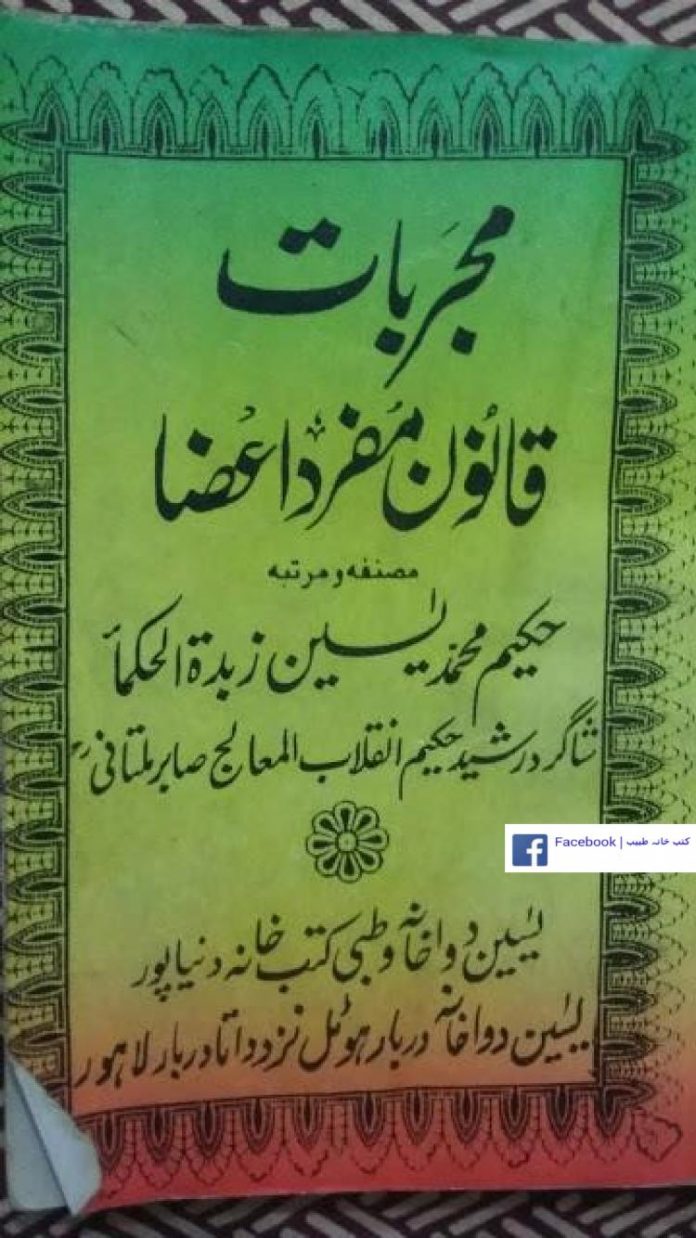 مجربات
قانون مفرد اعضا
مصنفہ و مرتبہ
حکیم محمد یٰسین زبدۃ الحکمأ
شاگرد رشید حکیم انقلاب المعالج صابر ملتانیؒ
Facebook | کتب خانہ طبیب
یٰسین دواخانہ و طبی کتب خانہ دنیاپور
یٰسین دواخانہ دربار ہوٹل نزد داتا دربار لاہور